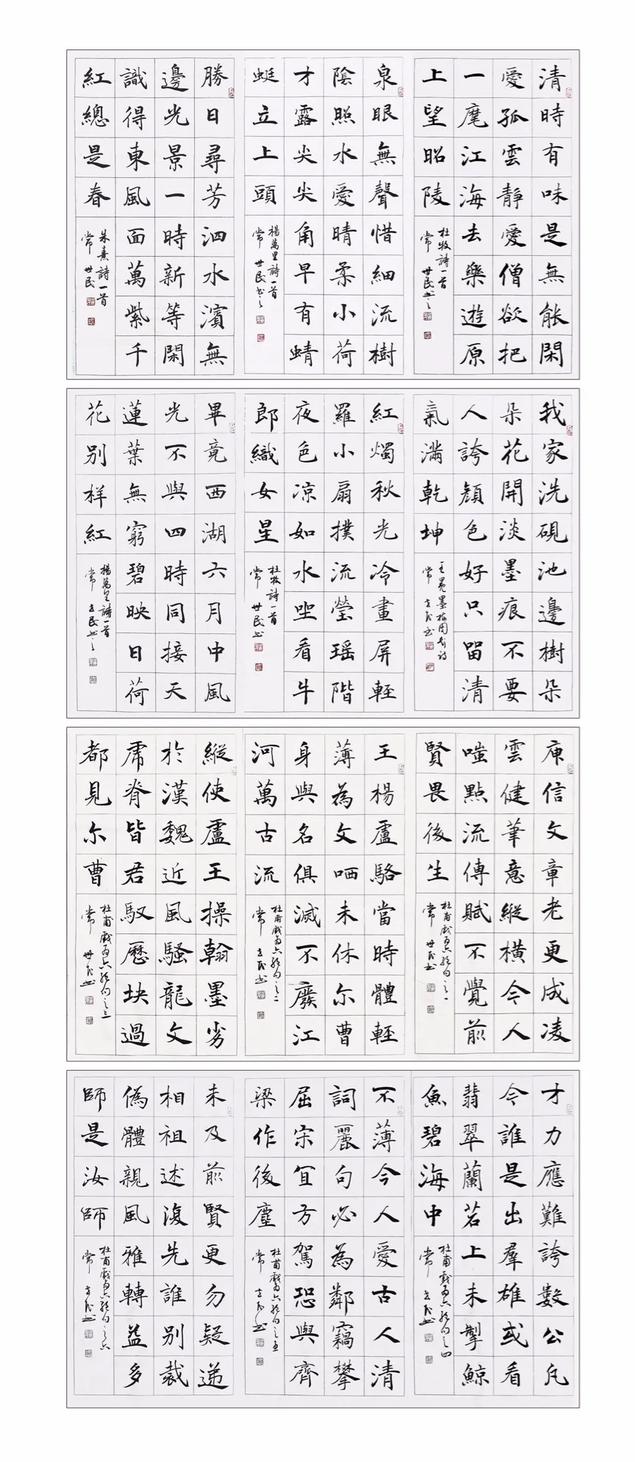 清時有味是無能閑
愛孤雲靜愛僧欲把
一麾江海去樂遊原
上望昭陵
杜牧詩一首
常世民書之
泉眼無聲惜細流樹
陰照水愛晴柔小荷
才露尖尖角早有蜻
蜓立上頭
楊萬里詩一首
常世民書之
勝日尋芳泗水濱無
邊光景一時新等閑
識得東風面萬紫千
紅總是春
朱熹詩一首
常世民
我家洗硯池邊樹朵
朵花開淡墨痕不要
人誇顏色好只留清
氣滿乾坤
王冕墨梅圖詩
常世民書
紅燭秋光冷畫屏輕
羅小扇撲流螢瑤階
夜色凉如水坐看牛
郎織女星
杜牧詩一首
常世民書
畢竟西湖六月中風
光不與四時同接天
蓮葉無窮碧映日荷
花別樣紅
楊萬里詩一首
常世民書之
庾信文章老更成凌
雲健筆意縱橫今人
嗤點流傳賦不覺前
賢畏後生
杜甫戲為六絕句之一
常世民書
王楊盧駱當時體輕
薄為文哂未休尔曹
身與名俱滅不廢江
河萬古流
杜甫戲為六絕句之二
常世民書
縱使盧王操翰墨劣
於漢魏近風騷龍文
虎脊皆君馭歷塊過
都見尔曹
杜甫戲為六絕句之三
常世民書
才力應難誇數公凡
今誰是出羣雄或看
翡翠蘭苕上未掣鯨
魚碧海中
杜甫戲為六絕句之四
常世民書
不薄今人愛古人清
詞麗句必為鄰竊攀
屈宋宜方駕恐與齊
梁作後塵
杜甫戲為六絕句之五
常世民書
未及前賢更勿疑遞
相祖述復先誰別裁
偽體親風雅轉益多
師是汝師
杜甫戲為六絕句之六
常世民書